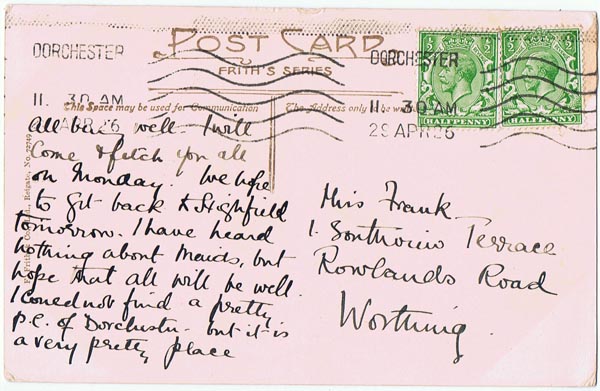 POST CARD
FRITH'S SERIES
DORCHESTER
11. 30 AM
APR 26
DORCHESTER
11. 30 AM
29 APR 26
HALFPENNY
HALFPENNY
This Space may be used for Communication
The Address only
F. Frith & Co. Reigate. No.
All being well. I will
come & fetch you all
on Monday. We hope
to get back to Highfield
tomorrow. I have heard
nothing about Maids, but
hope that all will be well.
I could not find a pretty
p.c. of Dorchester - but it is
a very pretty place
Miss Frank
1. Southview Terrace
Rowlands Road
Worthing.